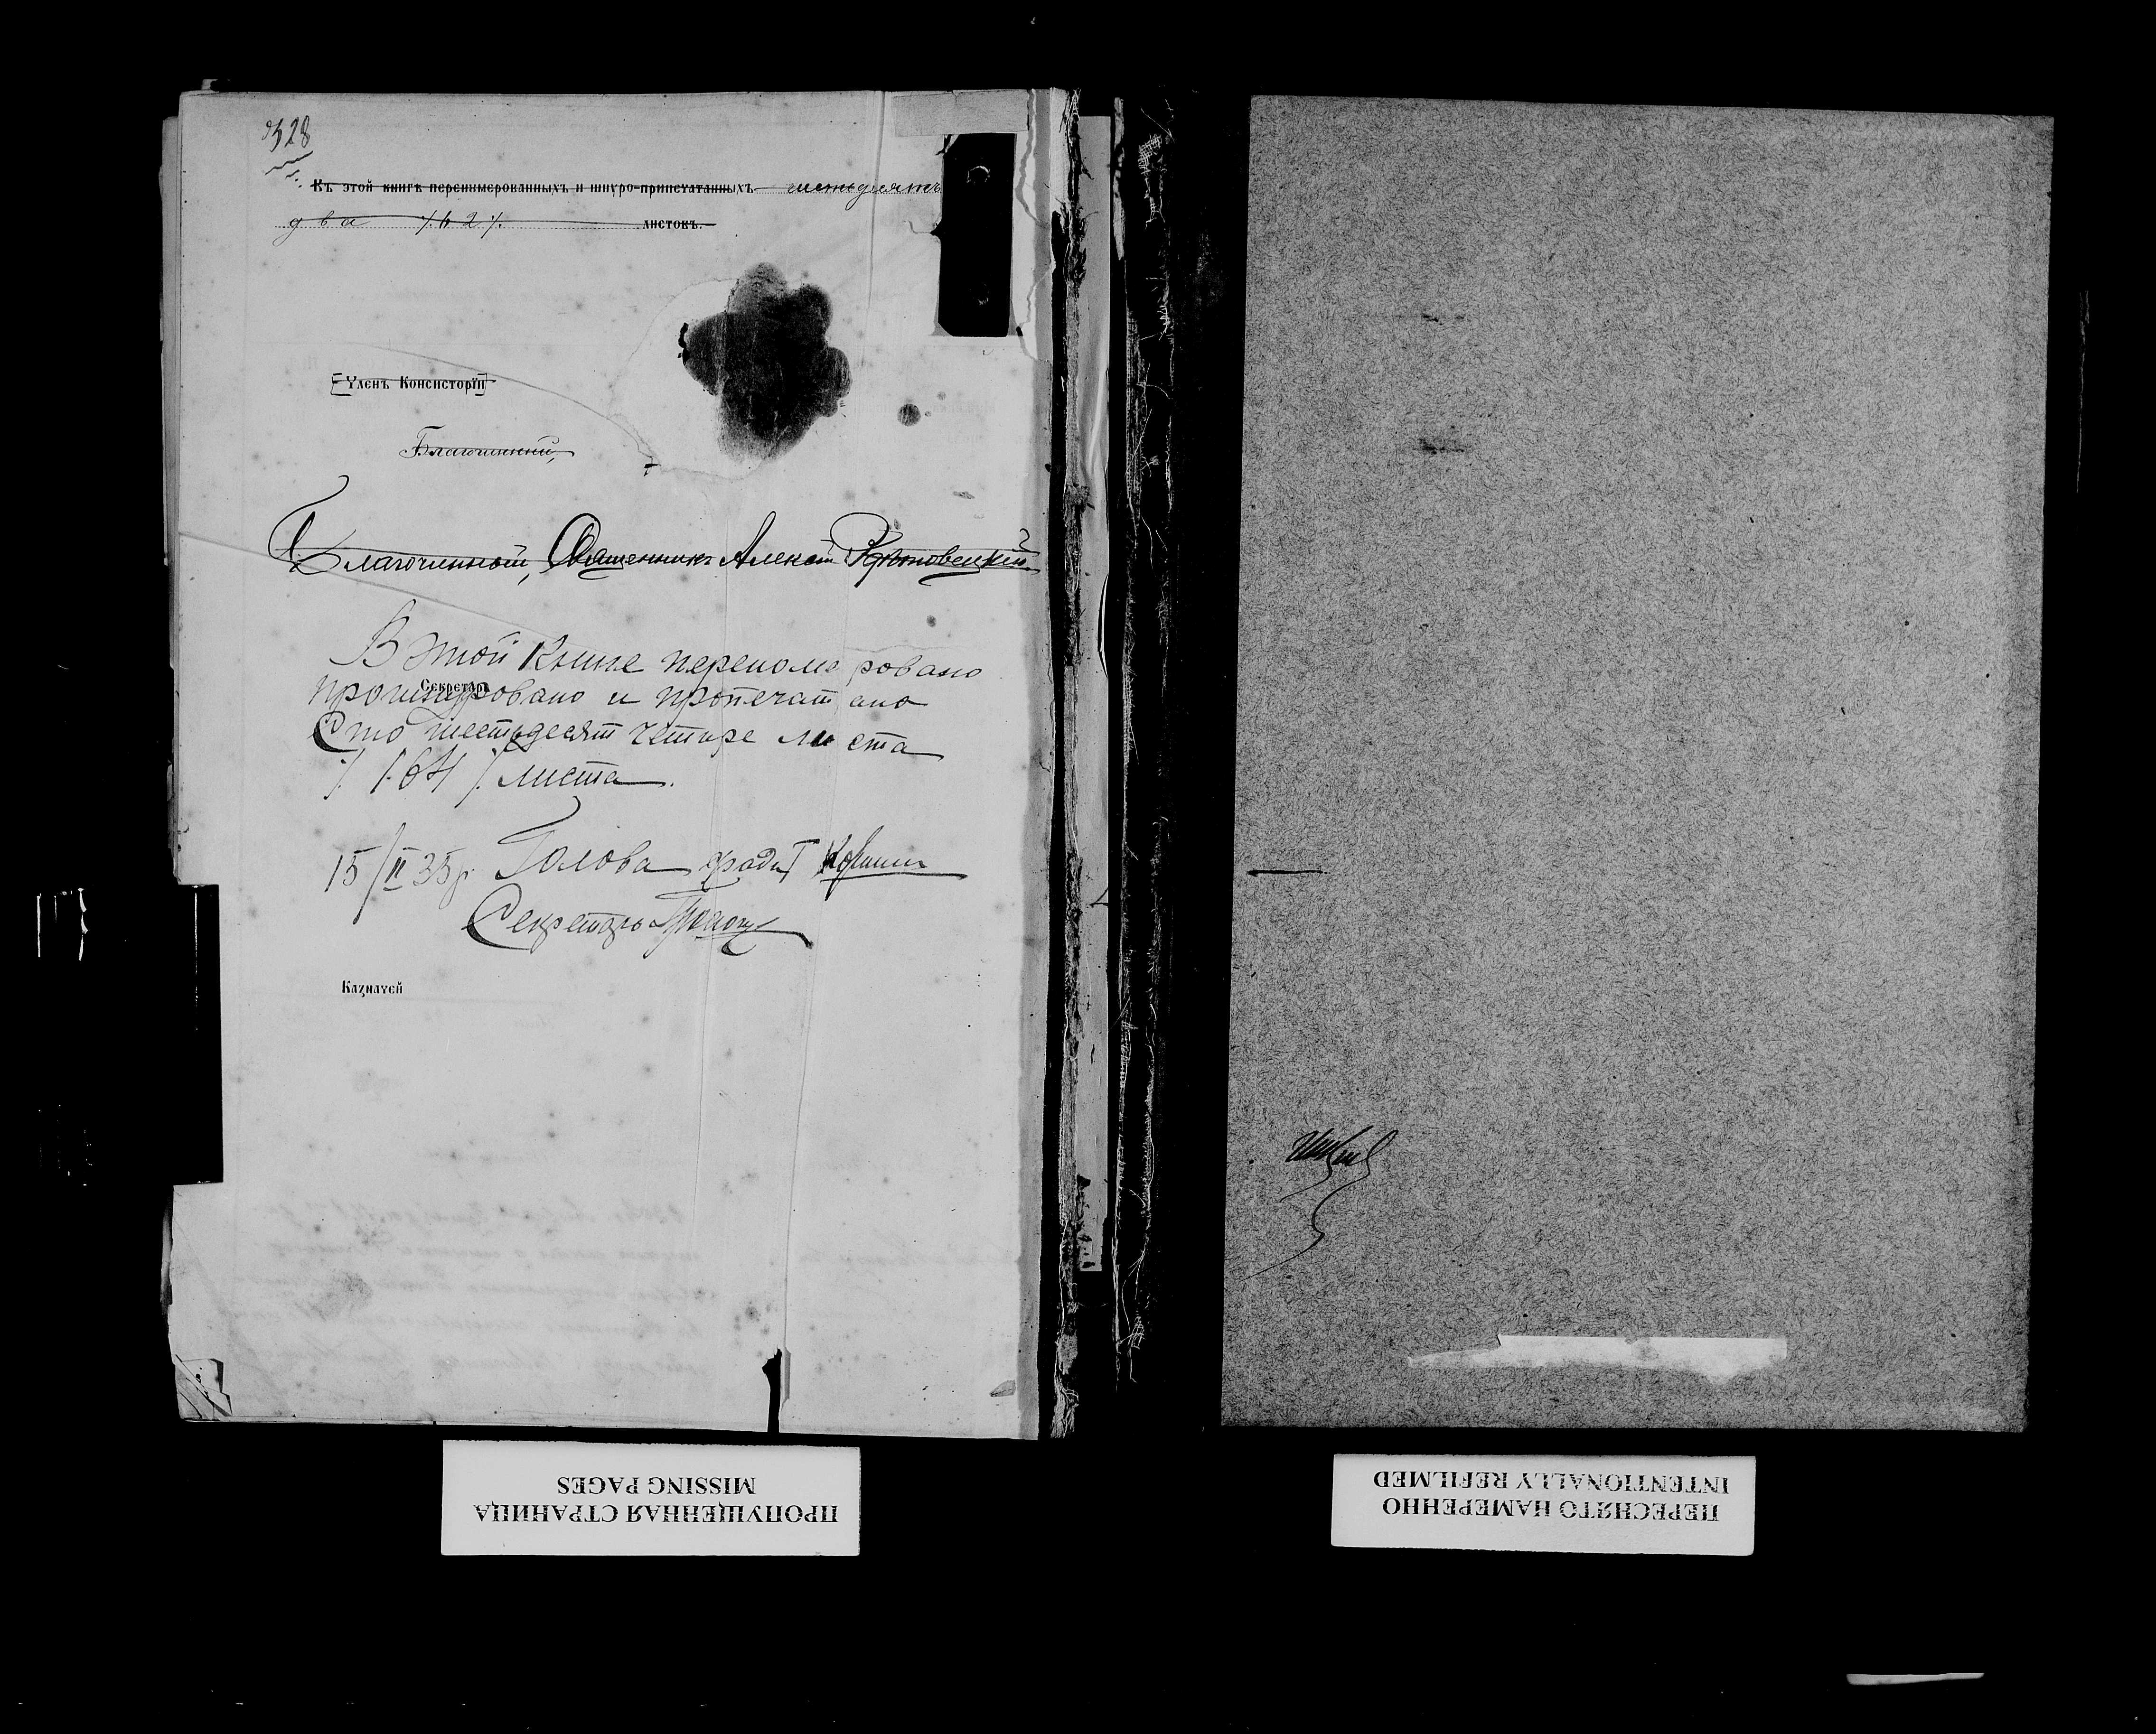 328
Къ этой книгѣ перенумерованныхъ и шнуро-припечатанныхъ шестьдесятъ
два /.62/. листокъ.
Членъ Консисторіи
Благочинный,
Благочинный, Священникъ Алексѣй
В этой книге перономеровано
Секретарь
прошнуровано и пропечатано
Сто шестьдесят четире листа
/. 164 /. листа.
15/II 35р. Голова
Секретарь
Казначей
ПРОПУЩЕННАЯ СТРАНИЦА
MISSING PAGES
ПЕРЕСНЯТО НАМЕРЕННО
INTENTIONALLY REFILMED